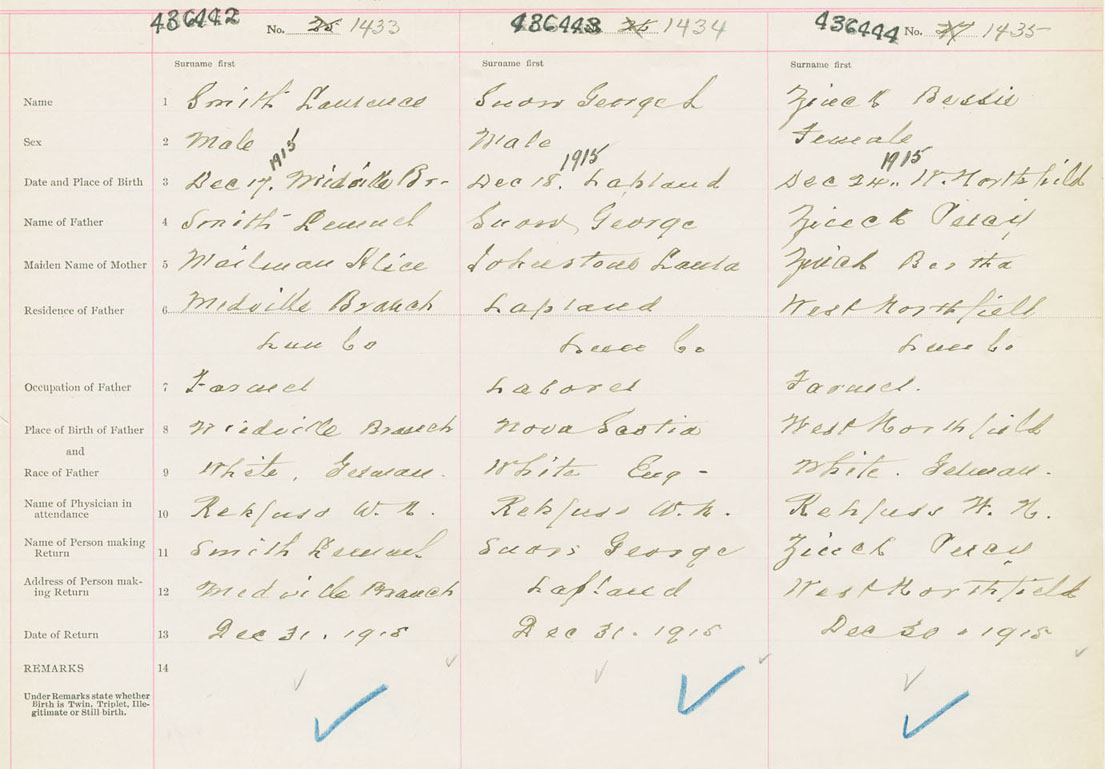 436442 No. 25 1433 436443 26 1434 436444 No. 27 1435
Surname first Surname first Surname first
Name 1 Smith Laurence Snow George L Zinck Bessie
Sex 2 Male Male Female
1915 1915 1915
Date and Place of Birth 3 Dec 17. Midville Br- Dec 18. Lapland Dec 24.. W. Northfield
Name of Father 4 Smith Lemuel Snow George Zinck Percy
Maiden Name of Mother 5 Mailman Alice Johnstone Laura Zinck Bertha
Residence of Father 6 Midville Branch Lapland West Northfield
Lun Co Lun Co Lun Co
Occupation of Father 7 Farmer Laborer Farmer.
Place of Birth of Father 8 Midville Branch Nova Scotia West Northfield
and
Race of Father 9 White, German. White Eng - White. German.
Name of Physician in
attendance 10 Rehfuss W. N. Rehfuss W. N. Rehfuss W. N.
Name of Person making
Return 11 Smith Lemuel Snow George Zinck Percy
Address of Person mak-
ing Return 12 Midville Branch Lapland West Northfield
Date of Return 13 Dec 31. 1915 Dec 31. 1915 Dec 30. 1915
REMARKS 14
Under Remarks state whether
Birth is Twin, Triplet, Ille-
gitimate or Still-birth.